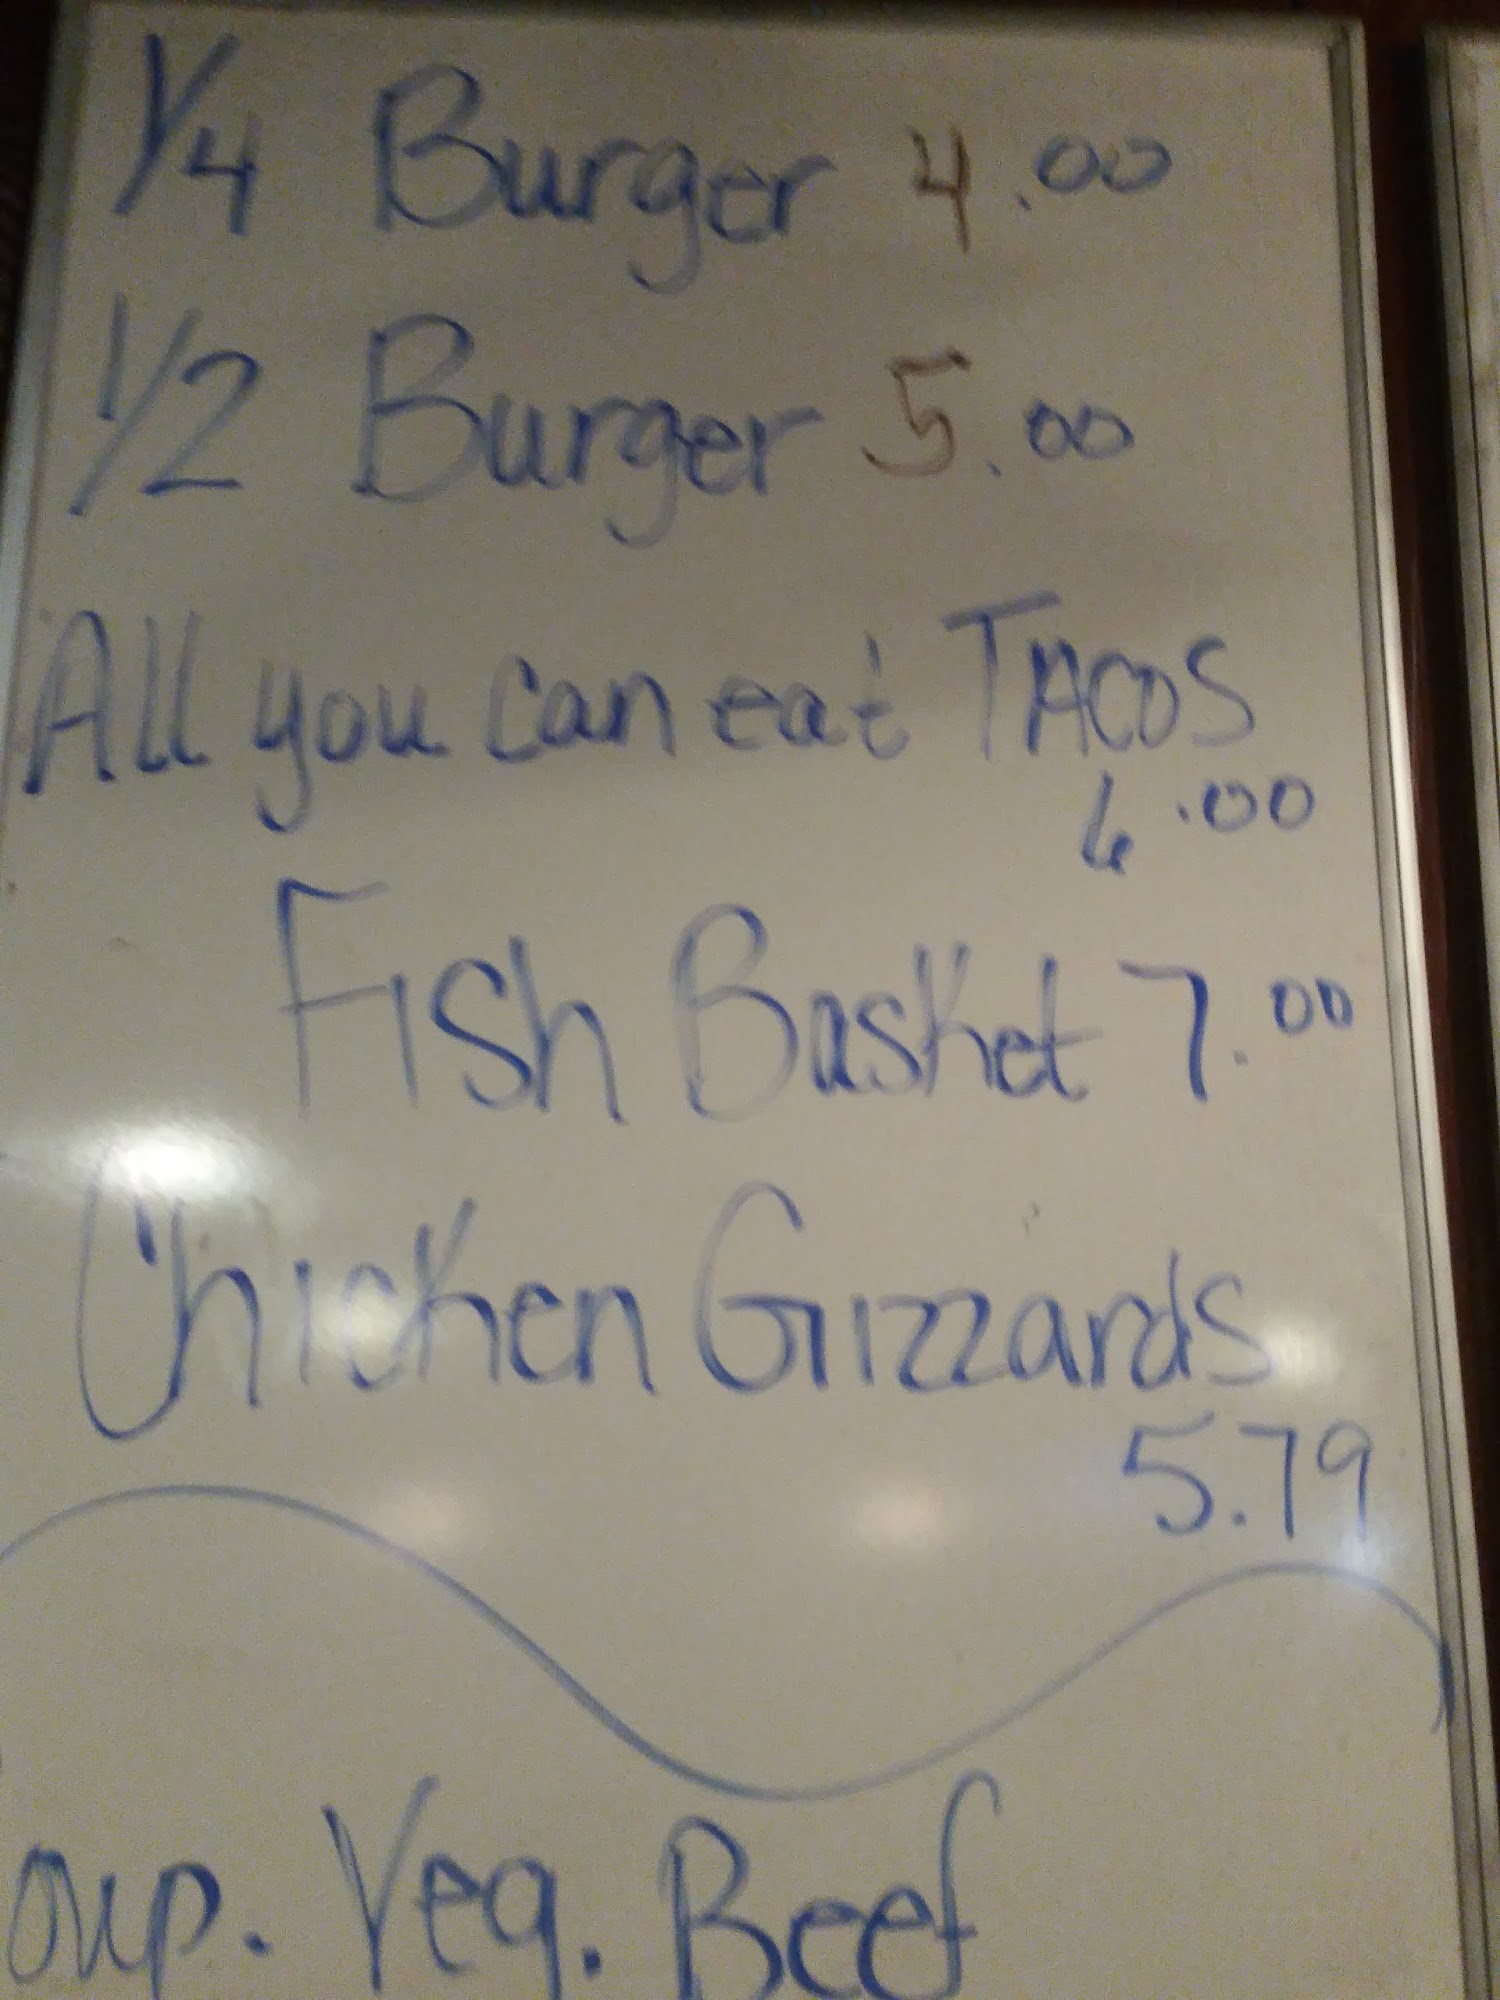 1/4 Burger 4.00
1/2 Burger 5.00
All you can eat TACOS
6.00
Fish Basket 7.00
Chicken Gizzards
5.79
oup. Veg. Beef